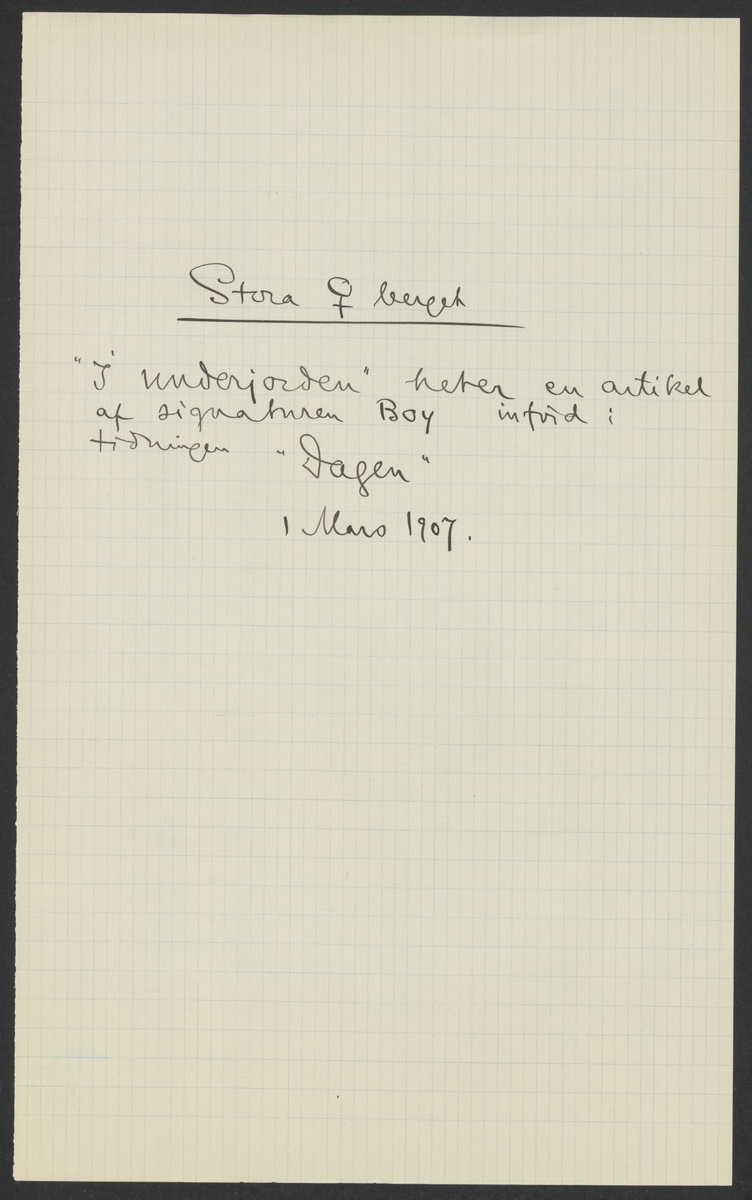 Stora ♀ berget
"I underjorden" heter en artikel
af signaturen Boy införd i
tidningen "Dagen"
1 Mars 1907.